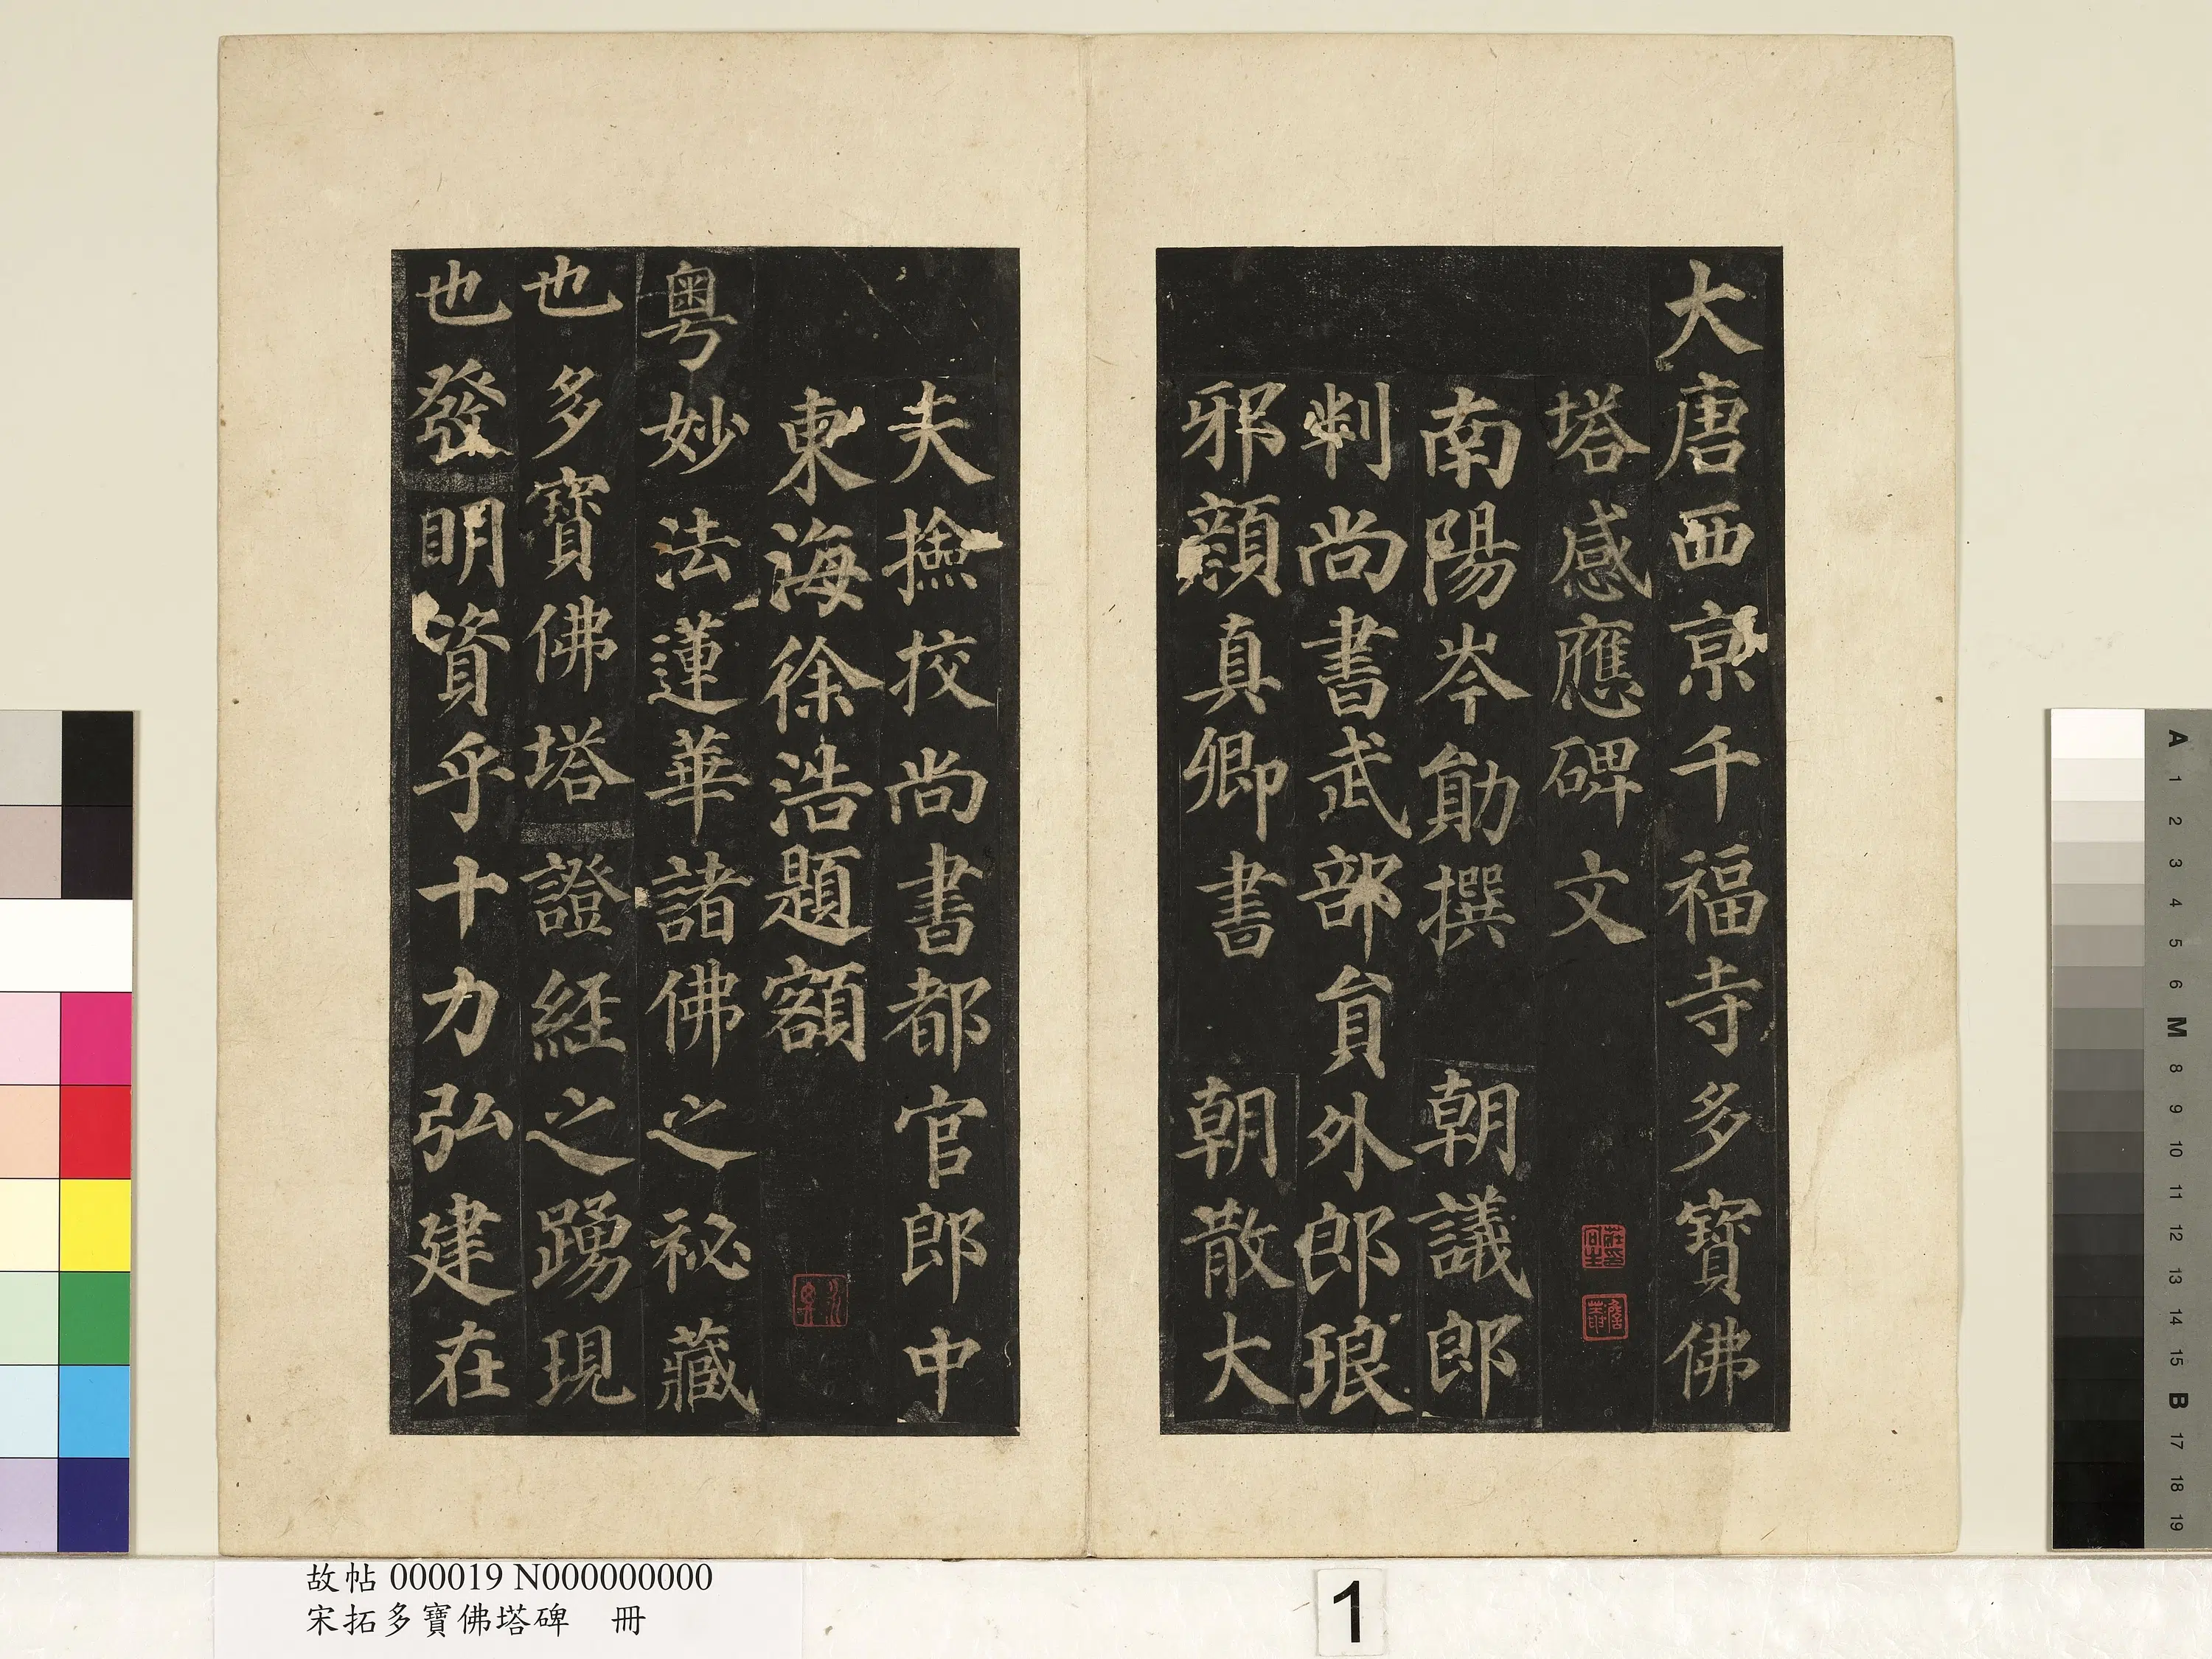 大唐西京千福寺多寶佛
塔感應碑文
南陽岑勛撰 朝議郎
判尚書武部貟外郎琅
邪顏真卿書 朝散大
夫撿挍尚書都官郎中
東海徐浩題額
粵妙法蓮華諸佛之祕藏
也多寶佛塔證經之踴現
也發明資乎十力弘建在
故帖 000019 N000000000
宋拓多寶佛塔碑 冊
1
A
1
2
3
4
5
6
M
8
9
10
11
12
13
14
15
B
17
18
19